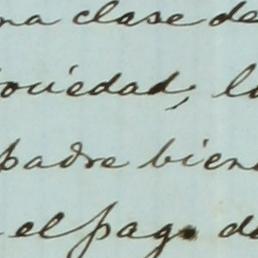 na clase de
ouédad, l
padre bien
el pago de